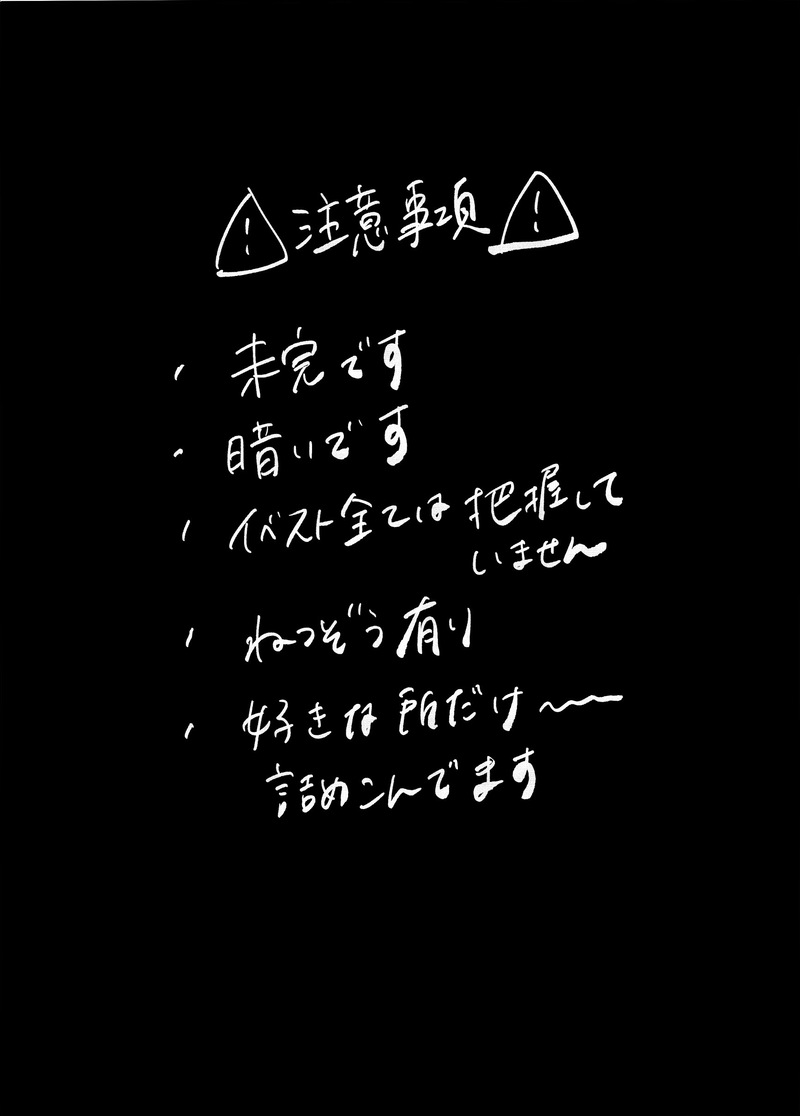 ⚠注意事項⚠
・未完です
・暗いです
・イベスト全ては把握して
いません
・ねつぞう有り
・好きな所だけ〜〜
詰めこんでます